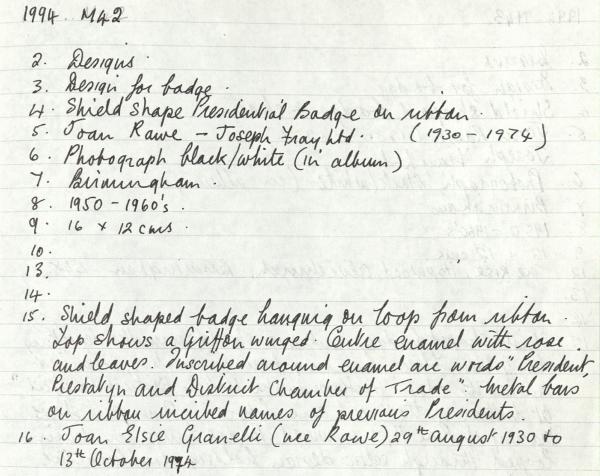 1994 M42
2. Designs.
3. Design for badge.
4. Shield shape Presidential Badge on ribbon.
5. Joan Rawe - Joseph Fray Ltd. (1930 - 1974)
6. Photograph black/white (in album)
7. Birmingham.
8. 1950 - 1960's.
9. 16 x 12 cms.
10.
13.
14.
15. Shield shaped badge hanging on loop from ribbon.
Top shows a Griffon winged. Centre enamel with rose
and leaves. Inscribed around enamel are words "President,
Prestatyn and District Chamber of Trade". Metal bars
on ribbon incribed names of previous Presidents.
16. Joan Elsie Granelli (nee Rawe) 29th August 1930 to
13th October 1974